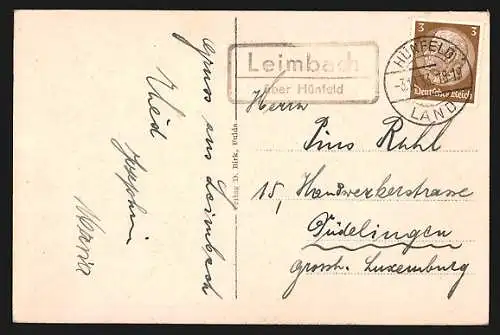 Gruss aus Leimbach
Josephin
Maria
Verlag D. Birk, Fulda
Leimbach
über Hünfeld
3
3
Deutsches Reich
HÜNFELD
18-19
LAND
Herrn
Pius Ruhl
15, Handwerkerstrasse
Düdelingen
Grossh. Luxemburg